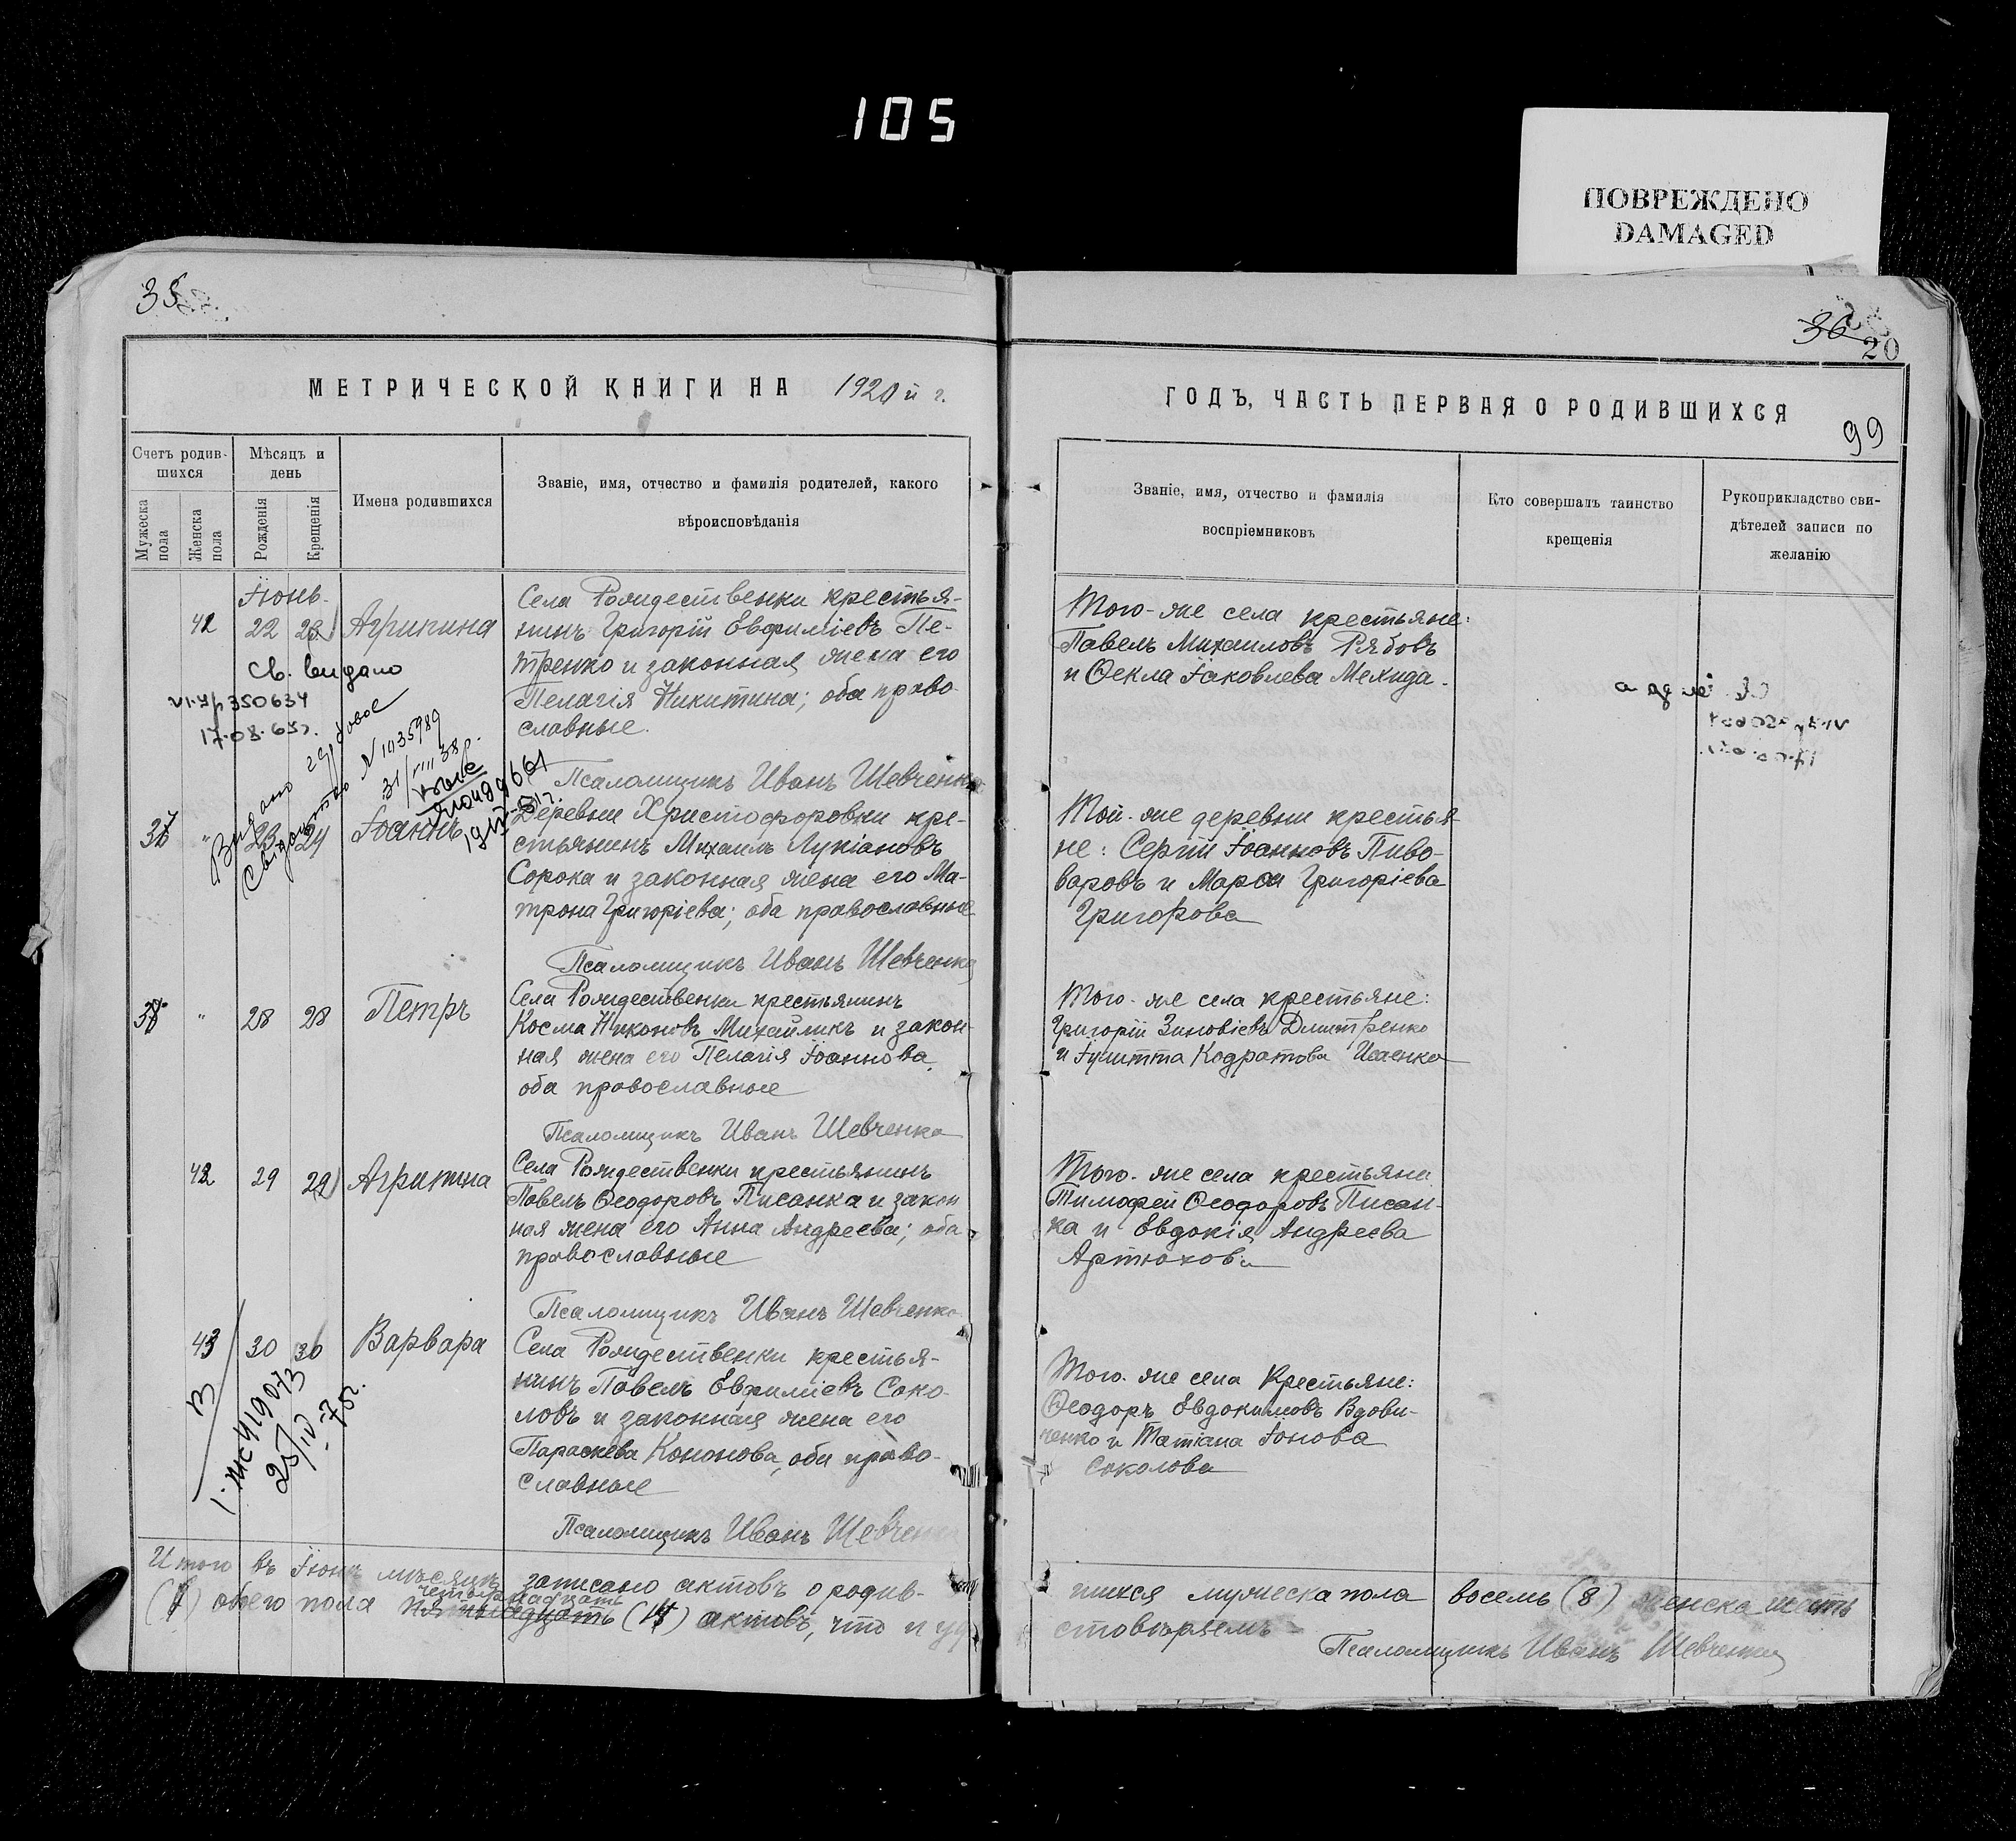 105
ПОВРЕЖДЕНО
DAMAGED
35
36
20
МЕТРИЧЕСКОЙ КНИГИ НА 1920 й г.
ГОДЪ, ЧАСТЬ ПЕРВАЯ О РОДИВШИХСЯ
99
Счетъ родив-
шихся
Мужеска пола
Женска пола
Мѣсяцъ и
день
Рожденія
Крещенія
Имена родившихся
Званіе, имя, отчество и фамилія родителей, какого
вѣроисповѣданія
Званіе, имя, отчество и фамилія
воспріемниковъ
Кто совершалъ таинство
крещенія
Рукоприкладство сви-
дѣтелей записи по
желанію
Іюнь
22 Агрипина
Села Рождественки крестья-
нинъ Григорій Евфиміевъ Пе-
тренко и законная жена его
Пелагія Никитина; оба право-
славные.
Псаломщикъ Иванъ Шевченко
Того-же села крестьяне:
Павелъ Михаиловъ Рябовъ
и Ѳекла Іаковлева Мехида.
Св. видано
350634
17.08.65г.
Видано
Свідоцтво N 1035989
31/VIII 38р.
" 23 24 Іоаннъ
Деревни Христофоровки кре-
стьянинъ Михаилъ Лукіановъ
Сорока и законная жена его Ма-
трона Григоріева; оба православные
Псаломщикъ Иванъ Шевченко
Той-же деревни крестья-
не: Сергій Іоанновъ Пиво-
варовъ и Марѳа Григоріева
Григорова
" 28 28 Петръ
Села Рождественки крестьянинъ
Косма Никоновъ Михайликъ и закон-
ная жена его Пелагія Іоаннова,
оба православные
Псаломщикъ Иванъ Шевченко
Того-же села крестьяне:
Григорій Зиновіевъ Дмитренко
и Іулитта Кодратова Исаенко
42 29 29 Агрипина
Села Рождественки крестьянинъ
Павелъ Ѳеодоровъ Писанка и закон
ная жена его Анна Андреева; оба
православные
Псаломщикъ Иванъ Шевченко
Того-же села крестьяне
Тимофей Ѳеодоровъ Писан-
ка и Евдокія Андреева
Артюхова
43 30 30 Варвара
Села Рождественки крестья-
нинъ Павелъ Евфиміевъ Соко-
ловъ и законная жена его
Параскева Кононова, оба право-
славные
Псаломщикъ Иванъ Шевченко
Того-же села Крестьяне:
Ѳеодоръ Евдокимовъ Вдови-
ченко и Татіана Іонова
Соколова
419073
Итого въ Іюнь мѣсяцъ записано актовъ о родив-
шихся мужеска пола восемь (8) женска шесть
обего пола четырнадцать (14) актовъ, что и удо
стовѣряемъ
Псаломщикъ Иванъ Шевченко